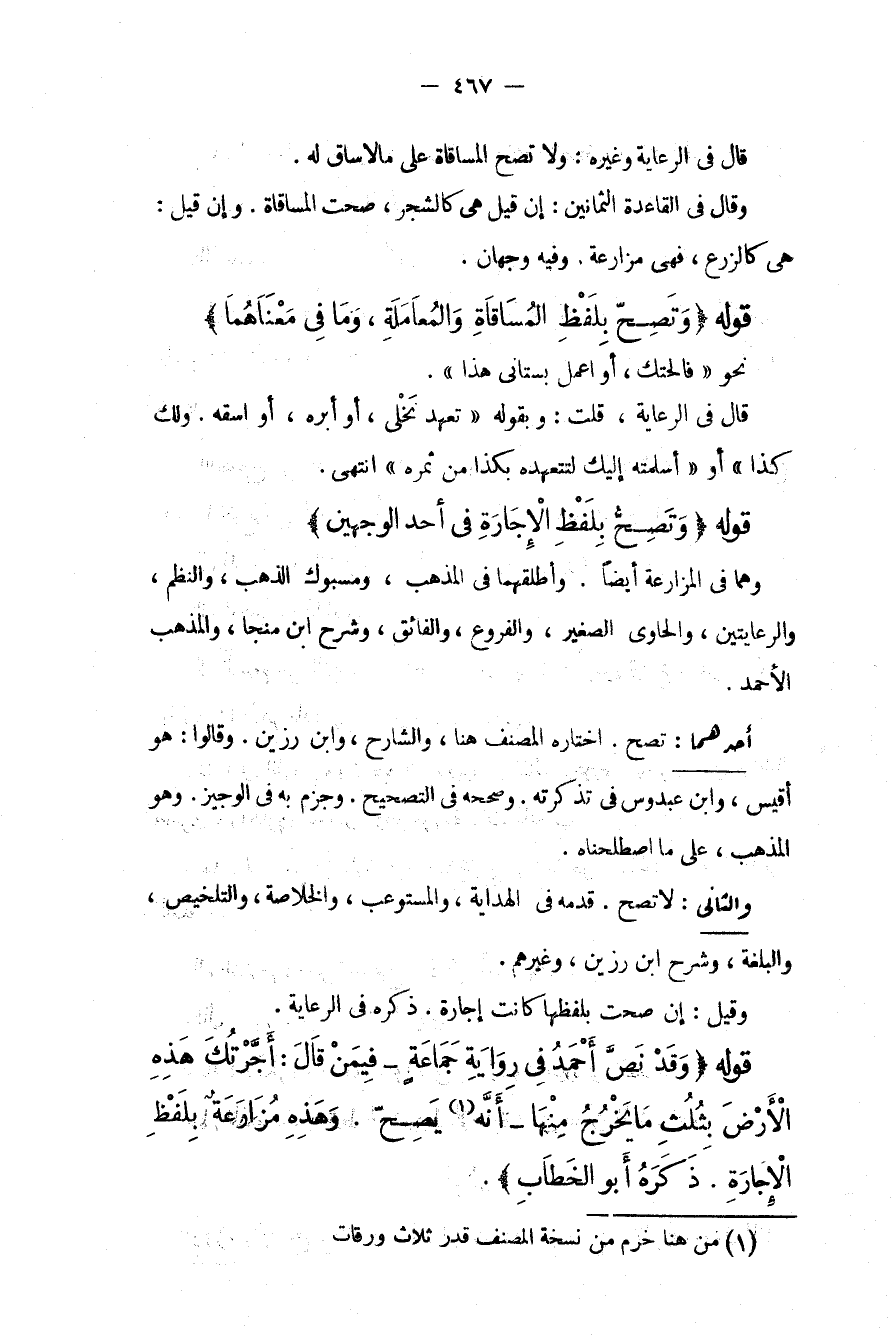 — ٤٦٧ —
قال فى الرعاية وغيره : ولا تصح المساقاة على مالاساق له .
وقال فى القاعدة الثمانين : إن قيل هى كالشجر ، صحت المساقاة . وإن قيل :
هى كالزرع ، فهى مزارعة . وفيه وجهان .
قوله ﴿ وَتَصِحّ بِلَفْظِ المُسَاقَاةِ وَالمُعاَمَلَةِ ، وَمَا فِى مَعْنَاَهُماَ ﴾
نحو « فالحتك ، أو اعمل بستانى هذا » .
قال فى الرعاية ، قلت : وبقوله « تعهد نَخْلى ، أو أبره ، أو اسقه . ولك
كذا » أو « أسلمته إليك لتتعهده بكذا من ثمره » انتهى .
قوله ﴿ وَتَصِحُّ بِلَفْظِ الْإِجَارَةِ فى أحد الوجهين ﴾
وهما فى المزارعة أيضاً . وأطلقهما فى المذهب ، ومسبوك الذهب ، والنظم ،
والرعايتين ، والحاوى الصغير ، والفروع ، والفائق ، وشرح ابن منجا ، والمذهب
الأحمد .
أحدهما : تصح . اختاره المصنف هنا ، والشارح ، وابن رزين . وقالوا : هو
أقيس ، وابن عبدوس فى تذكرته . وصححه فى التصحيح . وجزم به فى الوجيز . وهو
المذهب ، على ما اصطلحناه .
والثانى : لاتصح . قدمه فى الهداية ، والمستوعب ، والخلاصة ، والتلخيص ،
والبلغة ، وشرح ابن رزين ، وغيرهم .
وقيل : إن صحت بلفظها كانت إجارة . ذكره فى الرعاية .
قوله ﴿ وَقَدْ نَصَّ أَحْمَدُ فِى رِوَايَةِ جَمَاعَةٍ ــ فِيمَنْ قَالَ : أَجَّرْتُكَ هَذِهِ
الْأَرْضَ بِثُلُثِ مَايَخْرُجُ مِنْهَا ــ أَنَّه (١) يَصِحّ . وَهَذِهِ مُزَارَعَةٌ بِلَفْظِ
الْإِجَارَةِ . ذَكَرَهُ أَبو الخَطاَبِ ﴾ .
(١) من هنا خرم من نسخة المصنف قدر ثلاث ورقات